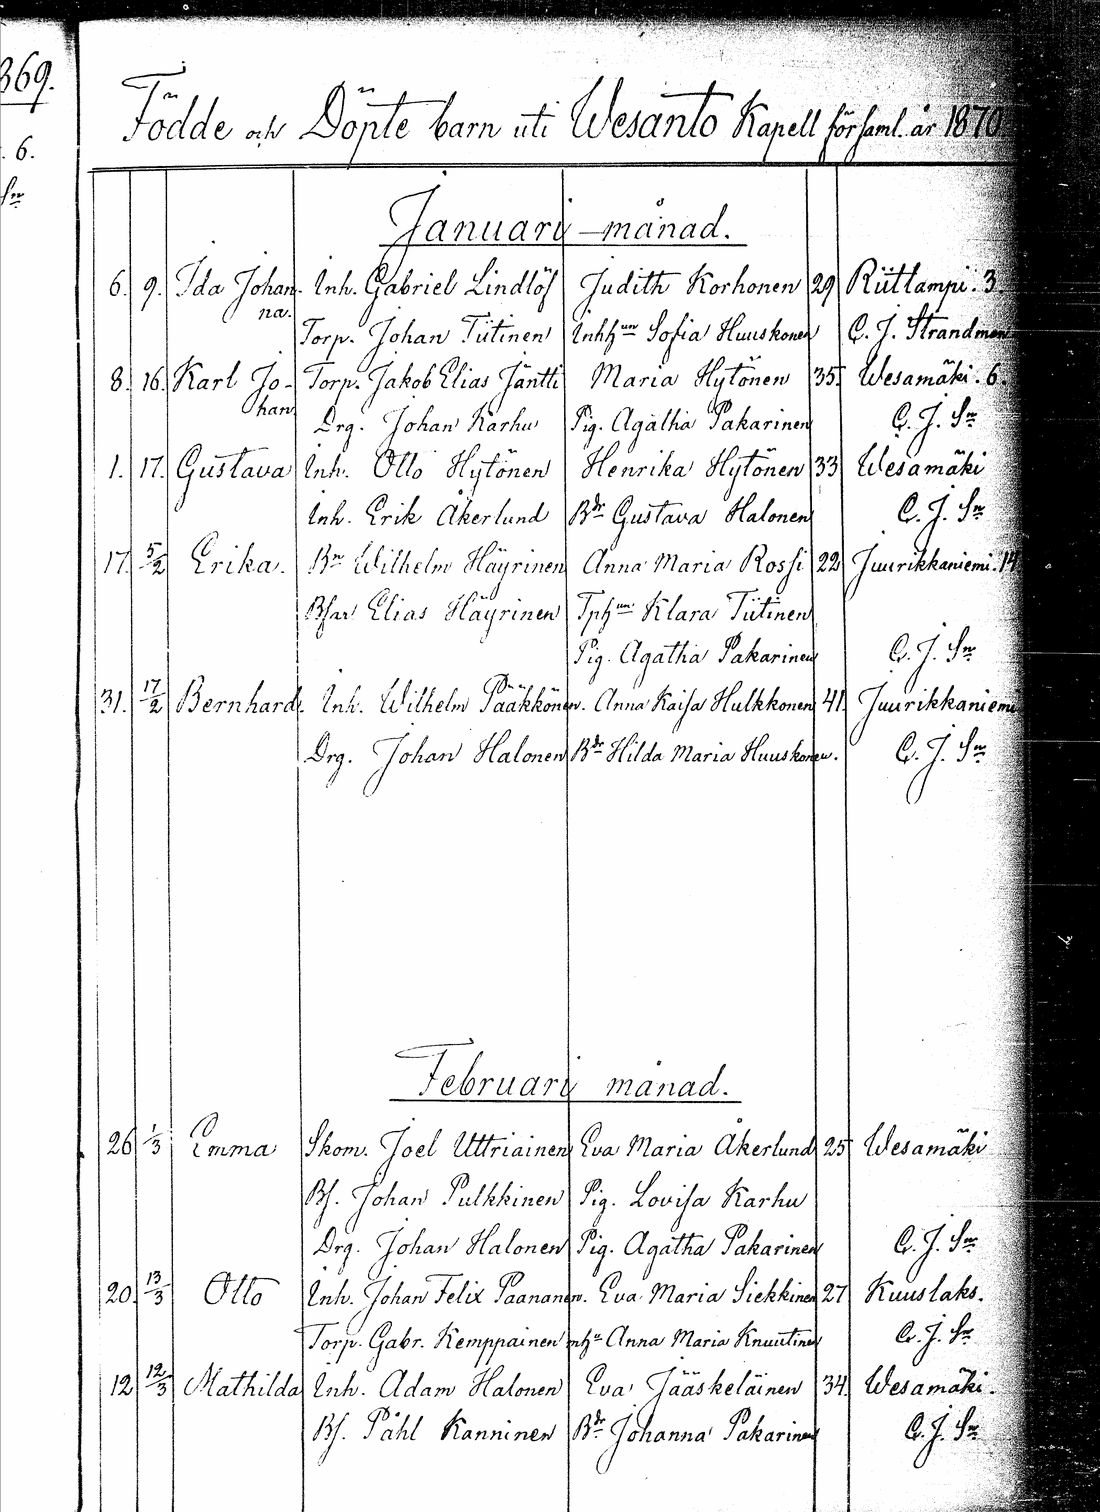 869.
. 6.
Sn
Födde och Döpte barn uti Wesanto Kapell församl. år 1870
Januari månad.
6. 9. Ida Johan- Inh. Gabriel Lindlöf Judith Korhonen 29 Riitlampi. 3
na. Torp. Johan Tiitinen Inhhun Sofia Huuskonen C. J. Strandman
8. 16. Karl Jo- Torp. Jakob Elias Jäntti Maria Hytönen 35. Wesamäki. 6.
han Drg. Johan Karhu Pig. Agatha Pakarinen C. J. Sn
1. 17. Gustava Inh. Otto Hytönen Henrika Hytönen 33 Wesamäki
Inh. Erik Åkerlund Bdr Gustava Halonen C. J. Sn
17. 5/2 Erika. Bn Wilhelm Häyrinen Anna Maria Rossi 22 Juurikkaniemi. 14
Elias Häyrinen Tphun Klara Tiitinen
Pig. Agatha Pakarinen C. J. Sn
31. 17/2 Bernhard. Inh. Wilhelm Pääkkönen. Anna Kaisa Hulkkonen 41. Juurikkaniemi
Drg. Johan Halonen Bdr Hilda Maria Huuskonen. C. J. Sn
Februari månad.
26 1/3 Emma Skom. Joel Uttriainen Eva Maria Åkerlund 25 Wesamäki
Bs. Johan Pulkkinen Pig. Lovisa Karhu
Drg. Johan Halonen Pig. Agatha Pakarinen C. J. Sn
20. 13/3 Otto Inh. Johan Felix Paananen. Eva Maria Siekkinen 27 Kuuslaks.
Torp. Gabr. Kemppainen Anna Maria Knuutinen C. J. Sn
12 12/3 Mathilda Inh. Adam Halonen Eva Jääskeläinen 34. Wesamäki.
Bs. Påhl Kanninen Bdr Johanna Pakarinen C. J. Sn